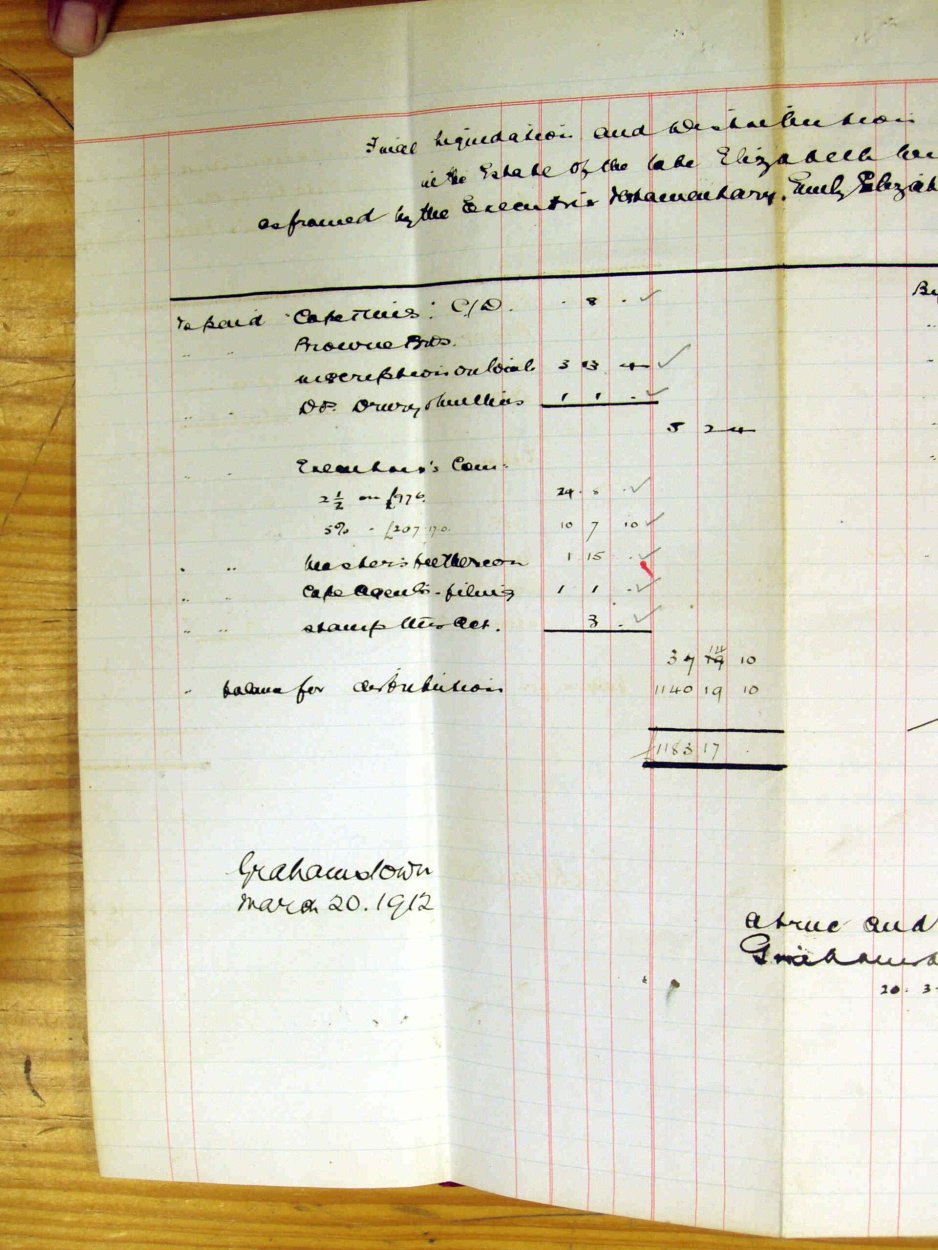 Final Liquidation and Distribution
in the Estate of the late Elizabeth
as framed by the Executrix Testamentary, Emily Elizab
To paid Cape Times: C/D. . 8 . ✓
" " Browne Bros.
inscription on 3 13 4 ✓
" " Dr. Drury 1 1 . ✓
5 2 4
" " Executor's Com:
2½ on £976. 24 8 . ✓
5% " £207.17.0. 10 7 10 ✓
" " Master's fee thereon 1 15 . ✓
" " Cape Agents - filing 1 1 . ✓
" " Stamp this Act. 3 . ✓
37 14 10
" balance for distribution 1140 19 10
1183 17 .
Grahamstown
March 20. 1912
a true and
Grahams
20. 3